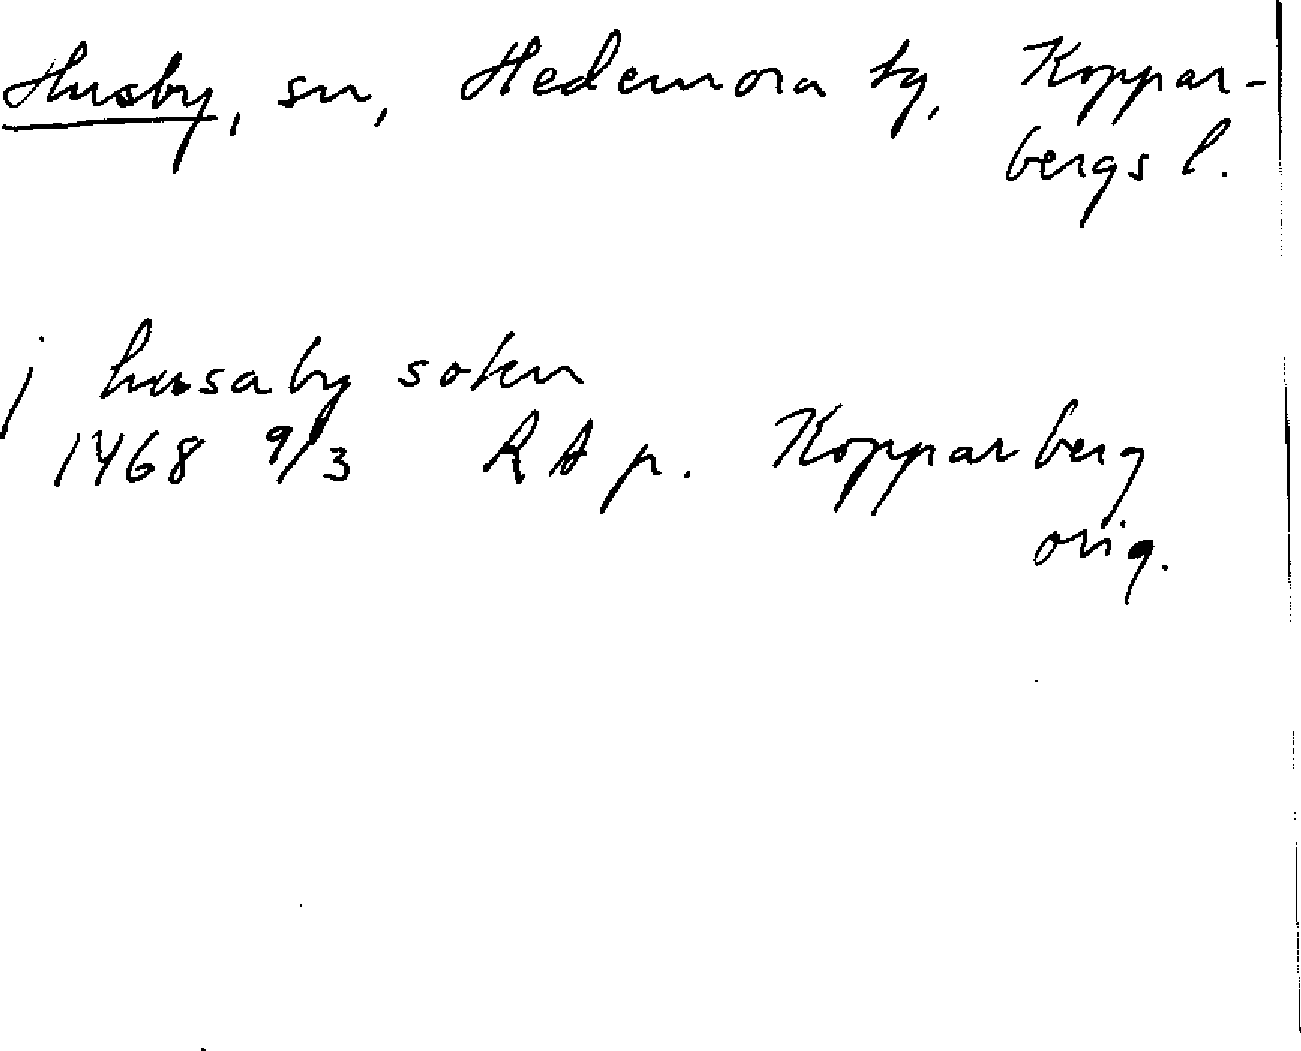 Husby, sn, Hedemora tg, Koppar-
bergs l.
j husaby sokn
1468 9/3 RA p. Kopparberg
orig.